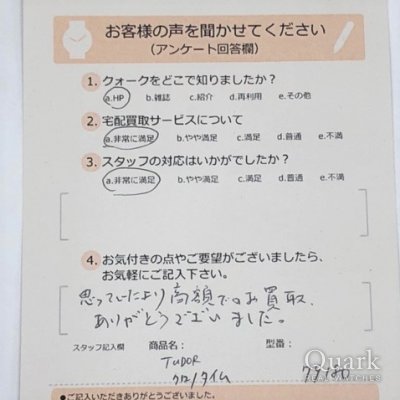 お客様の声を聞かせてください
(アンケート回答欄)
1. クォークをどこで知りましたか?
a.HP b.雑誌 c.紹介 d.再利用 e.その他
2. 宅配買取サービスについて
a.非常に満足 b.やや満足 c.満足 d.普通 e.不満
3. スタッフの対応はいかがでしたか?
a.非常に満足 b.やや満足 c.満足 d.普通 e.不満
4. お気付きの点やご要望がございましたら、
お気軽にご記入下さい。
思っていたより高額でのお買取、
ありがとうございました。
スタッフ記入欄 商品名: 型番:
TUDOR
クロノタイム 79180
Quark
●ご記入いただきありがとうございました。